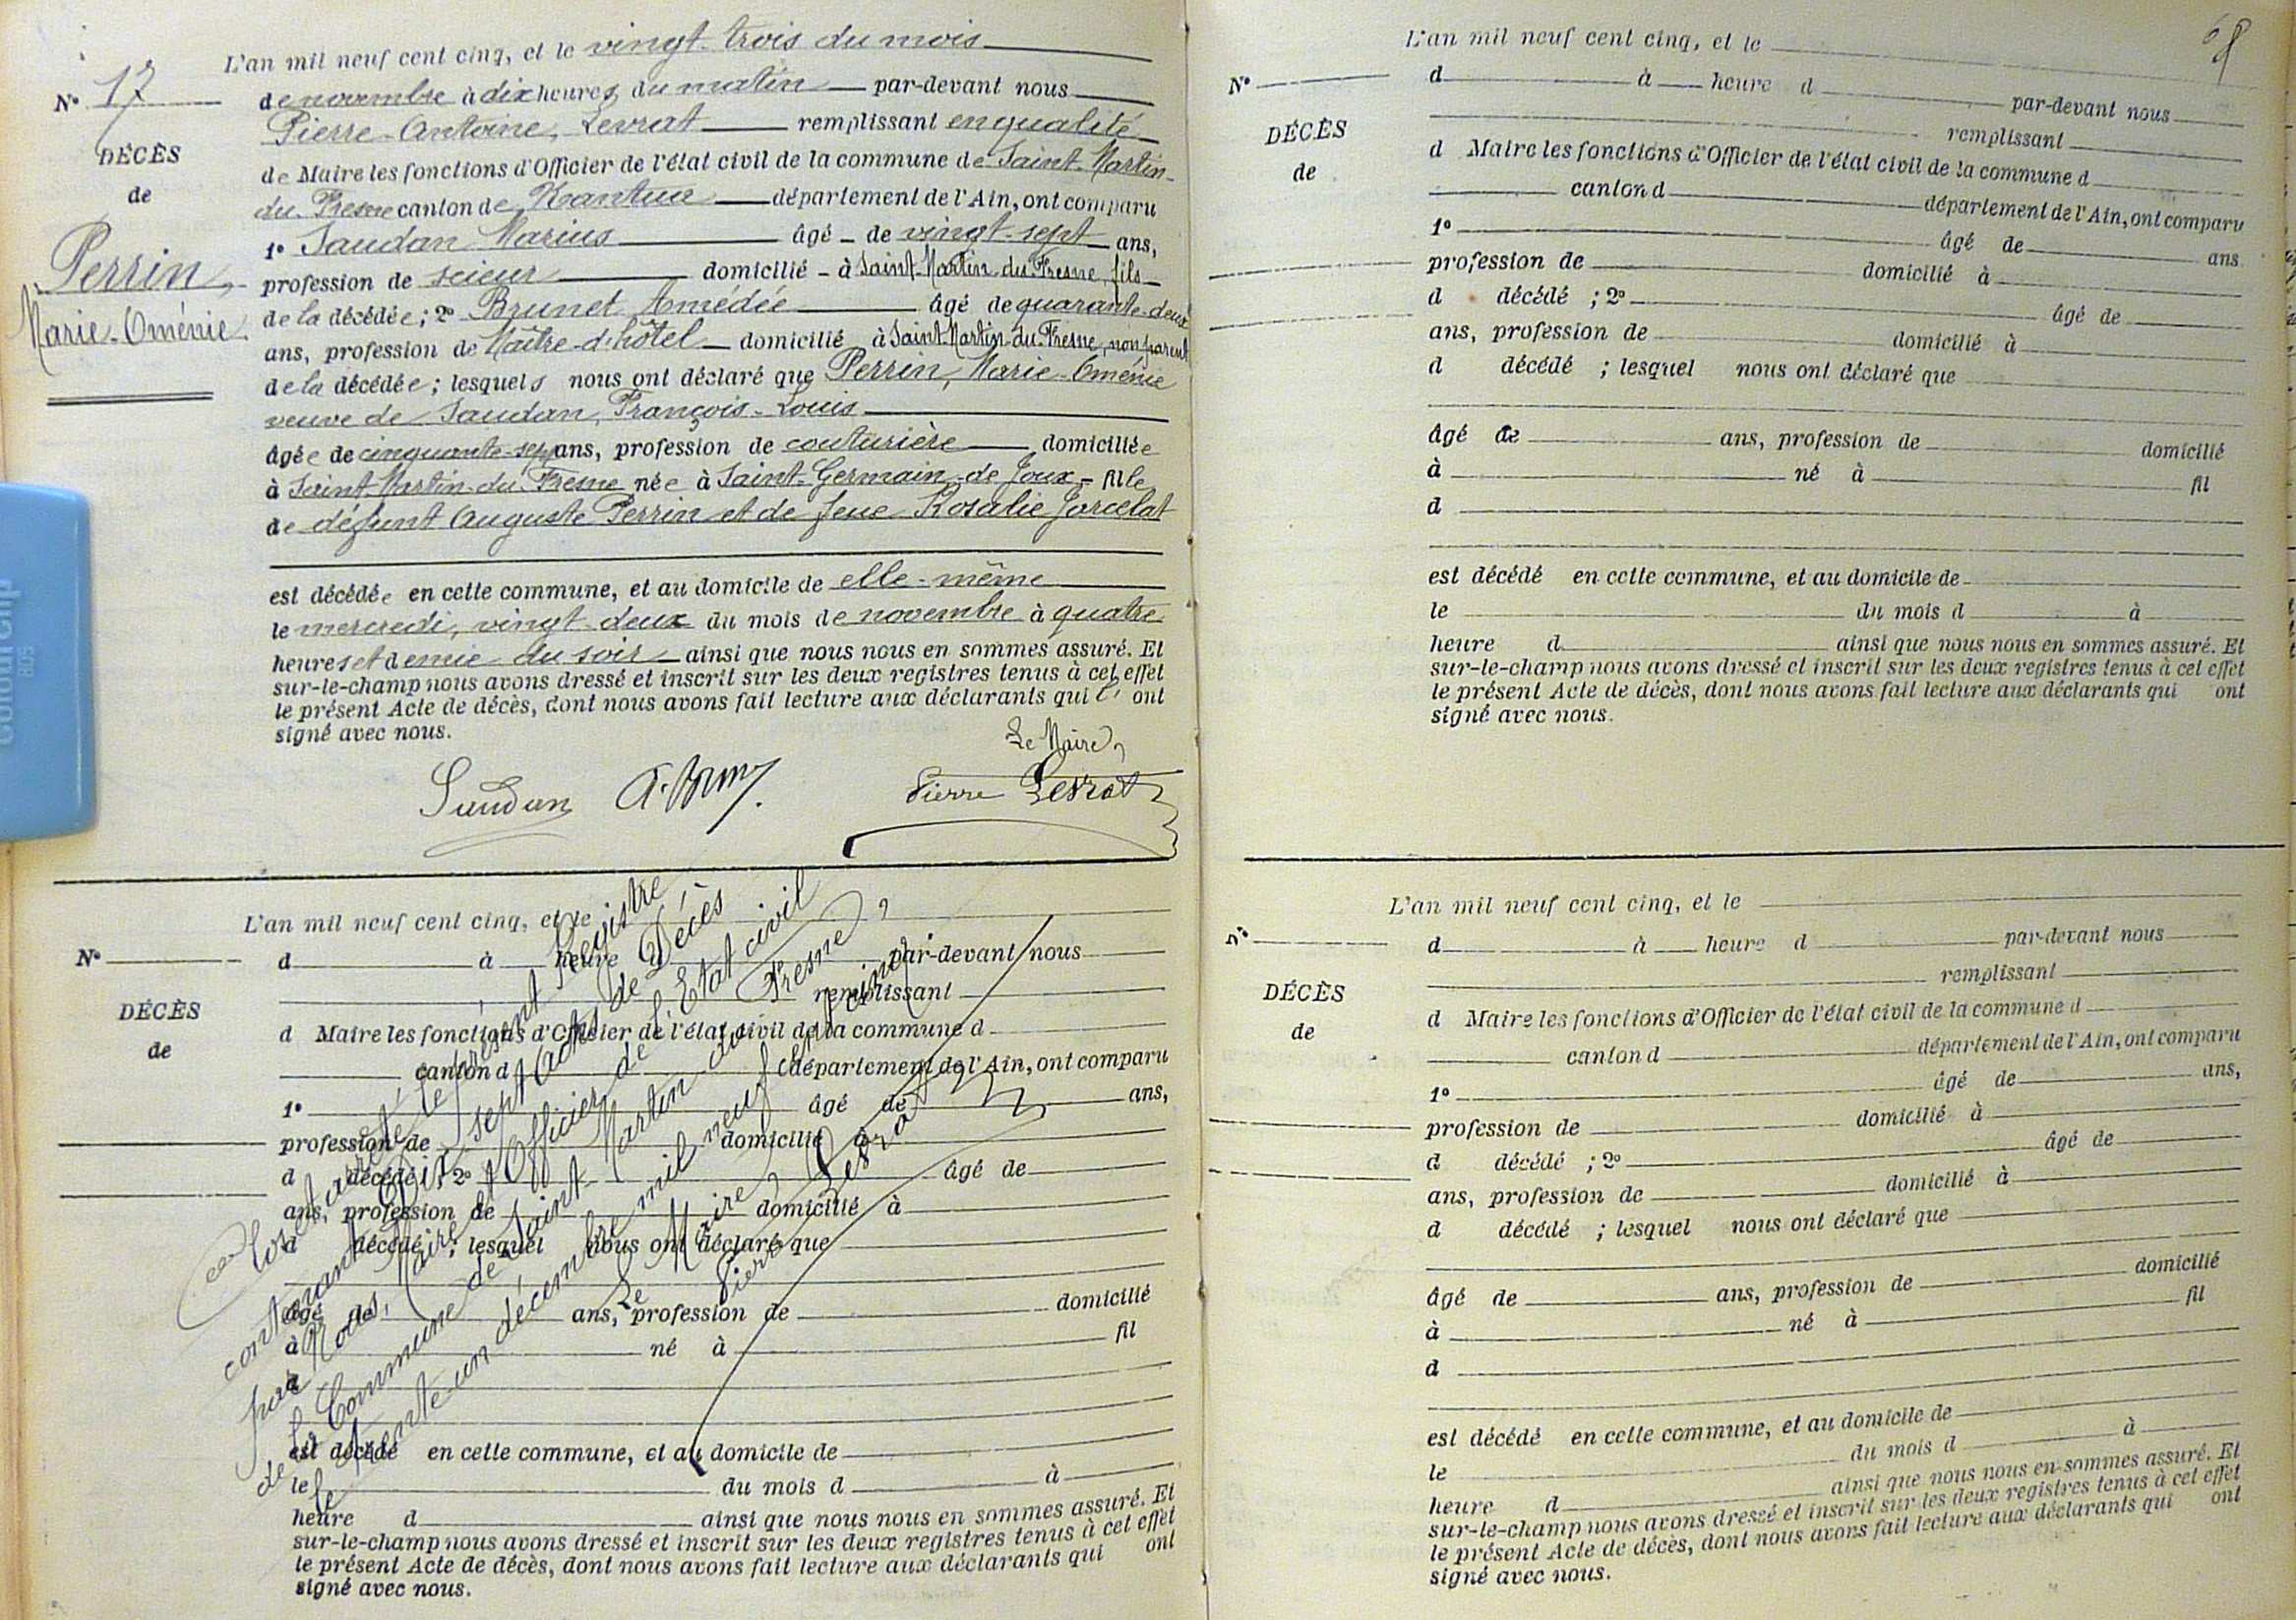 L'an mil neuf cent cinq, et le vingt-trois du mois
N° 17
de novembre à dix heures du matin par-devant nous
Pierre-Antoine, Levrat remplissant en qualité
DÉCÈS
de Maire les fonctions d'Officier de l'état civil de la commune de Saint-Martin-
de
du-Fresne canton de Nantua département de l'Ain, ont comparu
1° Saudan Marius âgé de vingt-sept ans,
Perrin,
profession de scieur domicilié à Saint-Martin-du-Fresne, fils
Marie-Oménie
de la décédée; 2° Brunet Amédée âgé de quarante-deux
ans, profession de Maître-d'hôtel domicilié à Saint-Martin-du-Fresne, non parent
de la décédée; lesquels nous ont déclaré que Perrin, Marie-Oménie
veuve de Saudan, François-Louis
âgée de cinquante-sept ans, profession de couturière domiciliée
à Saint-Martin-du-Fresne née à Saint-Germain-de-Joux, fille
de défunt Auguste Perrin et de feue Rosalie Jorcelat
est décédée en cette commune, et au domicile de elle-même
le mercredi, vingt-deux du mois de novembre à quatre
heures et demie du soir ainsi que nous nous en sommes assuré. Et
sur-le-champ nous avons dressé et inscrit sur les deux registres tenus à cet effet
le présent Acte de décès, dont nous avons fait lecture aux déclarants qui l'ont
signé avec nous.
Le Maire,
Saudan A. Brun Pierre Levrat
L'an mil neuf cent cinq, et le
N°
d à heure d par-devant nous
remplissant
DÉCÈS
d Maire les fonctions d'Officier de l'état civil de la commune d
de
canton d département de l'Ain, ont comparu
1° âgé de ans,
profession de domicilié à
d décédé ; 2° âgé de
ans, profession de domicilié à
d décédé ; lesquel nous ont déclaré que
âgé de ans, profession de domicilié
à né à fil
d
est décédé en cette commune, et au domicile de
le du mois d à
heure d ainsi que nous nous en sommes assuré. Et
sur-le-champ nous avons dressé et inscrit sur les deux registres tenus à cet effet
le présent Acte de décès, dont nous avons fait lecture aux déclarants qui ont
signé avec nous.
Clos et arrêté le présent Registre
contenant Dix-sept actes de Décès
par Nous, Maire et Officier de l'Etat civil
de la Commune de Saint-Martin-du-Fresne,
le trente-un décembre mil neuf cent cinq.
Le Maire,
Pierre Levrat
68
L'an mil neuf cent cinq, et le
N°
d à heure d par-devant nous
remplissant
DÉCÈS
d Maire les fonctions d'Officier de l'état civil de la commune d
de
canton d département de l'Ain, ont comparu
1° âgé de ans
profession de domicilié à
d décédé ; 2° âgé de
ans, profession de domicilié à
d décédé ; lesquel nous ont déclaré que
âgé de ans, profession de domicilié
à né à fil
d
est décédé en cette commune, et au domicile de
le du mois d à
heure d ainsi que nous nous en sommes assuré. Et
sur-le-champ nous avons dressé et inscrit sur les deux registres tenus à cet effet
le présent Acte de décès, dont nous avons fait lecture aux déclarants qui ont
signé avec nous.
L'an mil neuf cent cinq, et le
N°
d à heure d par-devant nous
remplissant
DÉCÈS
d Maire les fonctions d'Officier de l'état civil de la commune d
de
canton d département de l'Ain, ont comparu
1° âgé de ans,
profession de domicilié à
d décédé ; 2° âgé de
ans, profession de domicilié à
d décédé ; lesquel nous ont déclaré que
âgé de ans, profession de domicilié
à né à fil
d
est décédé en cette commune, et au domicile de
le du mois d à
heure d ainsi que nous nous en sommes assuré. Et
sur-le-champ nous avons dressé et inscrit sur les deux registres tenus à cet effet
le présent Acte de décès, dont nous avons fait lecture aux déclarants qui ont
signé avec nous.